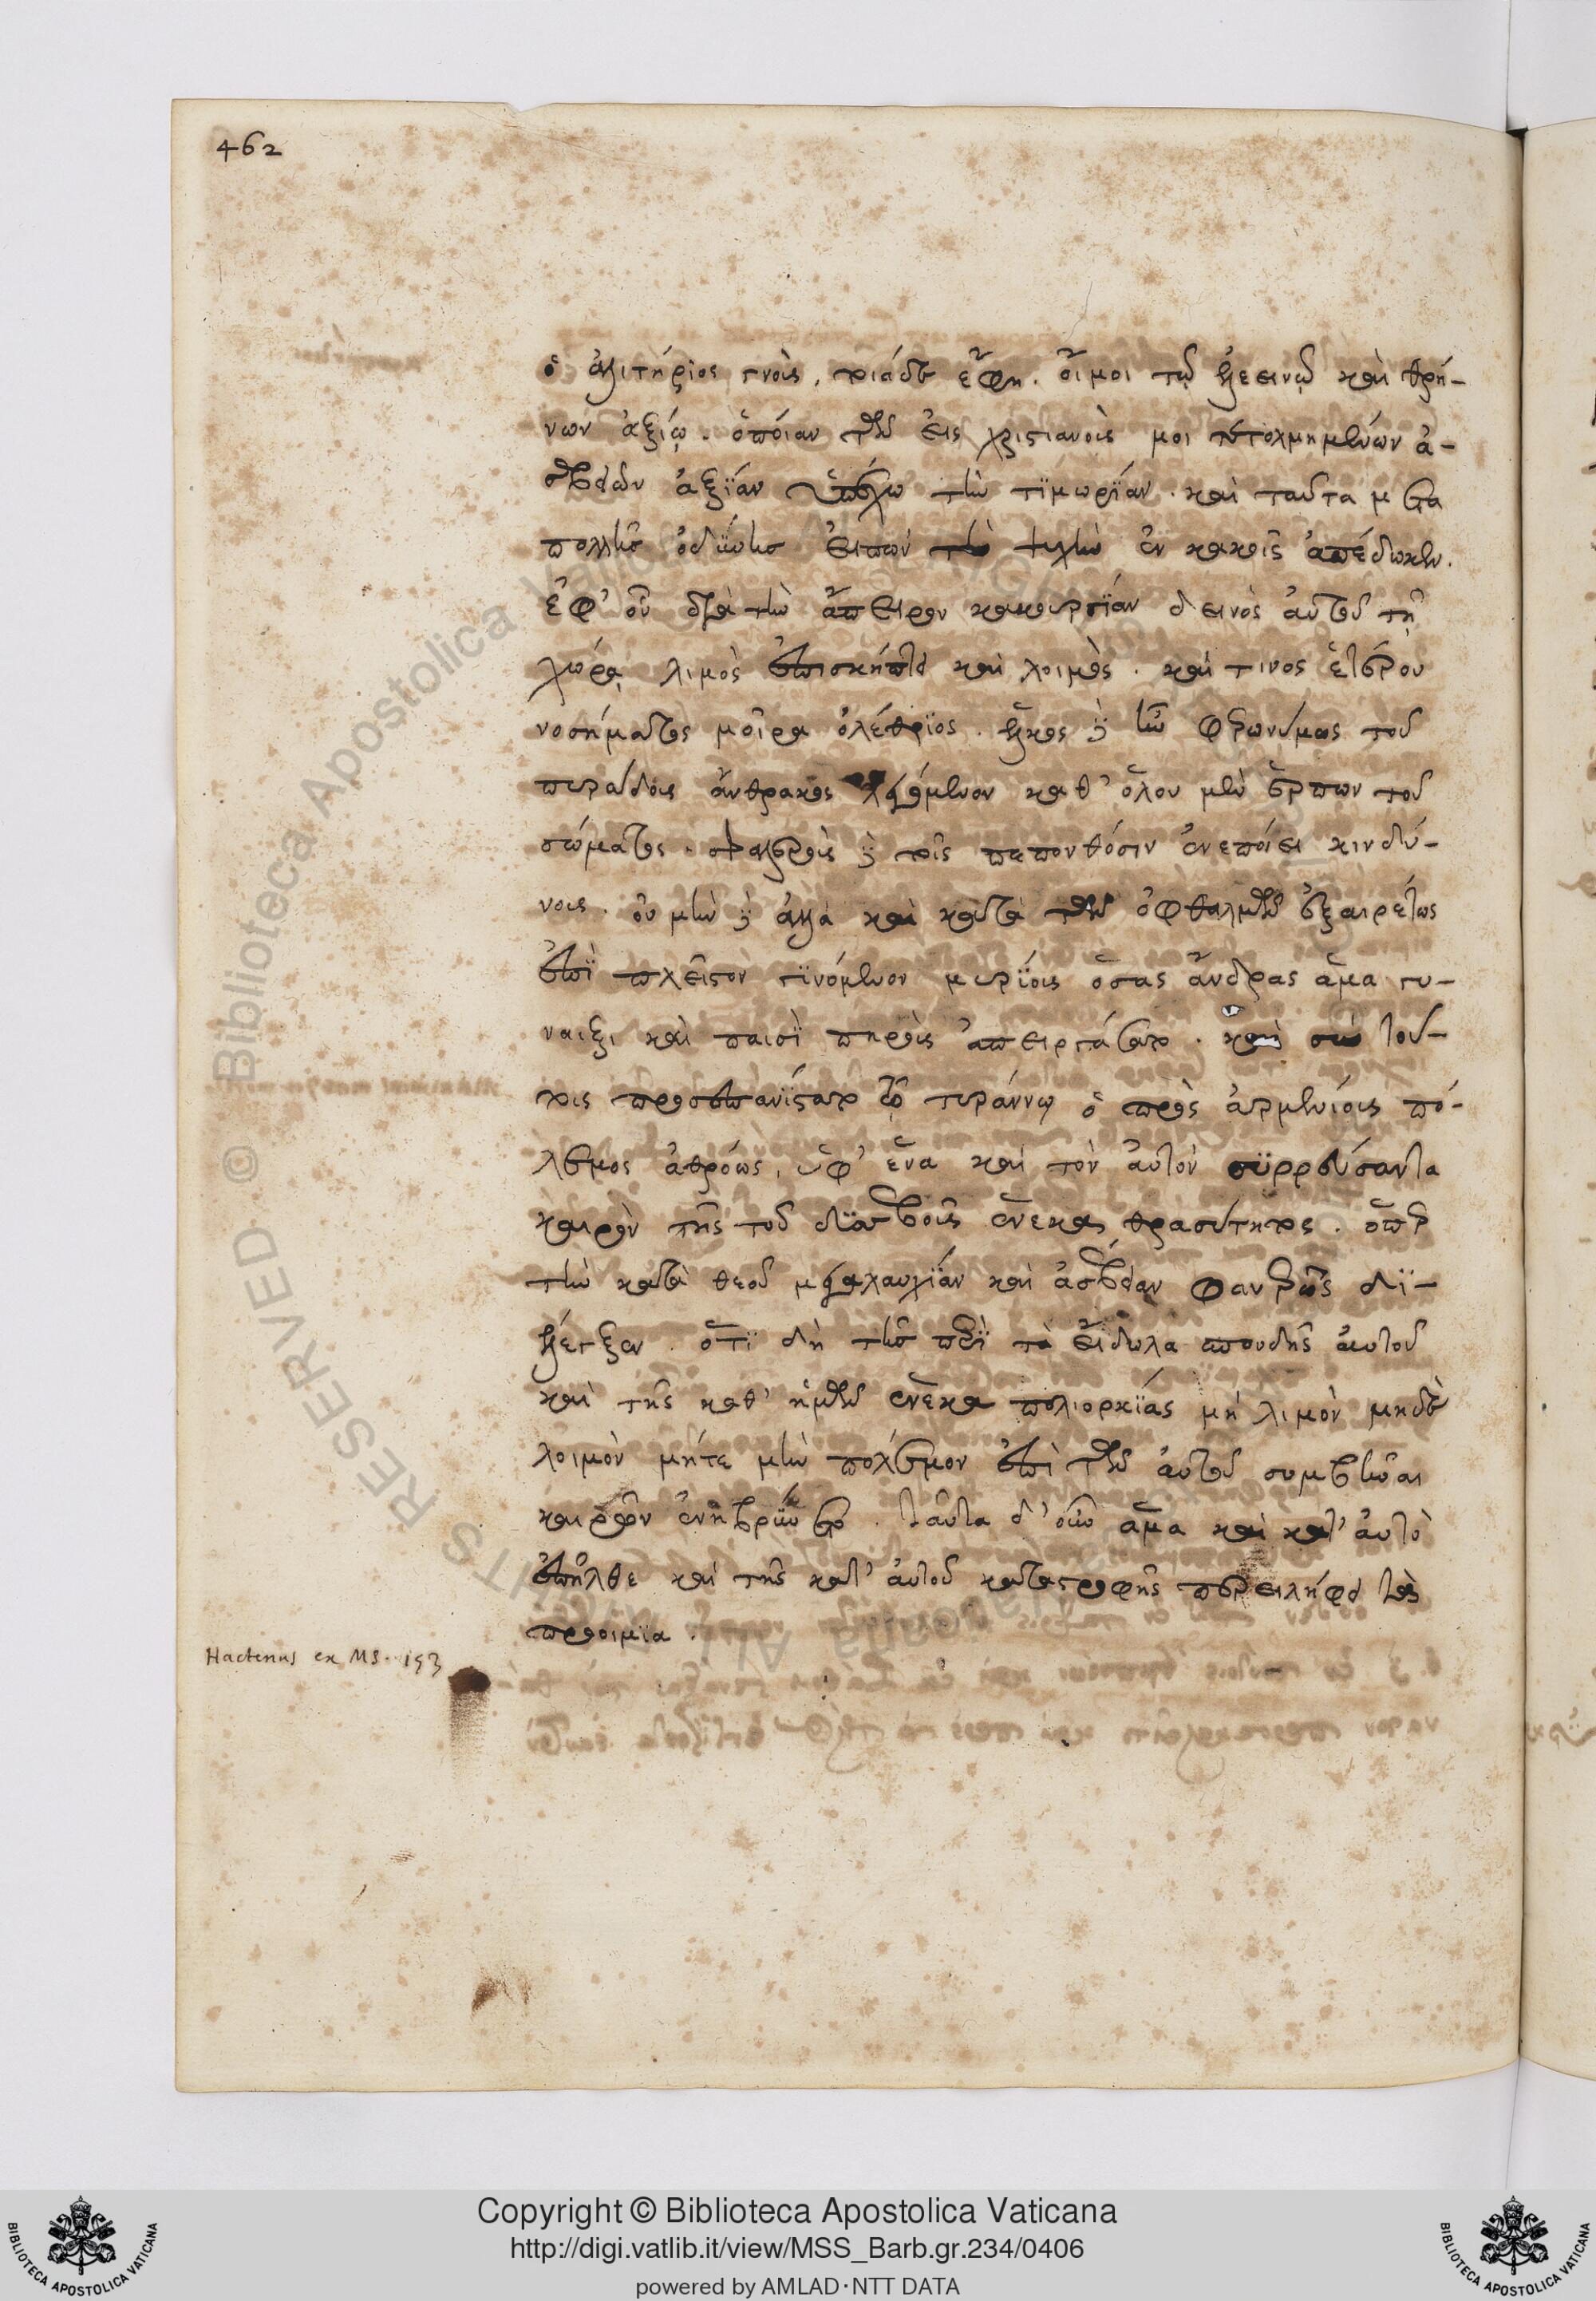 462
ὁ ἀλιτήριος γνοὺς, τοιάδε ἔφη. οἴμοι τῷ ἐλεεινῷ καὶ θρή-
νων ἀξίῳ. ὁποίαν τῶν εἰς χριστιανούς μοι τετολμημένων ἀ-
σεβειῶν ἀξίαν ὑπέχω τὴν τιμωρίαν. καὶ ταῦτα μετὰ
πολλῆς ὀδύνης εἰπὼν τὴν ψυχὴν ἐν κακοῖς ἀπέδωκεν.
ἐφ' οὗ διὰ τὴν ἄπειρον κακουργίαν δεινὸς αὐτοῦ τῇ
χώρᾳ λιμὸς ἐπισκήπτει καὶ λοιμός. καί τινος ἑτέρου
νοσήματος μοῖρα ὀλέθριος. ἕλκος δὲ ἦν φερωνύμως τοῦ
πυρώδους ἄνθρακος λεγόμενον καθ' ὅλου μὲν ἕρπων τοῦ
σώματος. σφαλεροὺς δὲ τοῖς πεπονθόσιν ἐνεποίει κινδύ-
νους. οὐ μὴν δὲ ἀλλὰ καὶ κατὰ τῶν ὀφθαλμῶν ἐξαιρέτως
ἐπὶ πλεῖστον γινόμενον μυρίους ὅσας ἄνδρας ἅμα γυ-
ναιξὶ καὶ παισὶ πηροὺς ἀπειργάσατο. καὶ σὺν τού-
τοις προσεπανίσταται τῷ τυράννῳ ὁ πρὸς ἀρμενίους πό-
λεμος ἀθρόως, ὑφ' ἕνα καὶ τὸν αὐτὸν συρρεύσαντα
καιρὸν τῆς τοῦ δυσσεβοῦς ἕνεκα θρασύτητος. ὅπερ
τὴν κατὰ θεοῦ μεγαλαυχίαν καὶ ἀσέβειαν φανερῶς δι-
ήλεγξεν. ὅτι δὴ τῆς περὶ τὰ εἴδωλα σπουδῆς αὐτοῦ
καὶ τῆς καθ' ἡμῶν ἕνεκα πολιορκίας μὴ λιμὸν μηδὲ
λοιμὸν μήτε μὴν πόλεμον ἐπὶ τῶν αὐτοῦ συμβῆναι
καιρῶν ἐνηβρύνετο. ταῦτα δ' οὖν ἅμα καὶ κατ' αὐτὸ
ἐπῆλθε καὶ τῆς κατ' αὐτοῦ καταστροφῆς περιειλήφει τὰ
προοίμια.
Hactenus ex MS. 153
Copyright © Biblioteca Apostolica Vaticana
http://digi.vatlib.it/view/MSS_Barb.gr.234/0406
powered by AMLAD·NTT DATA